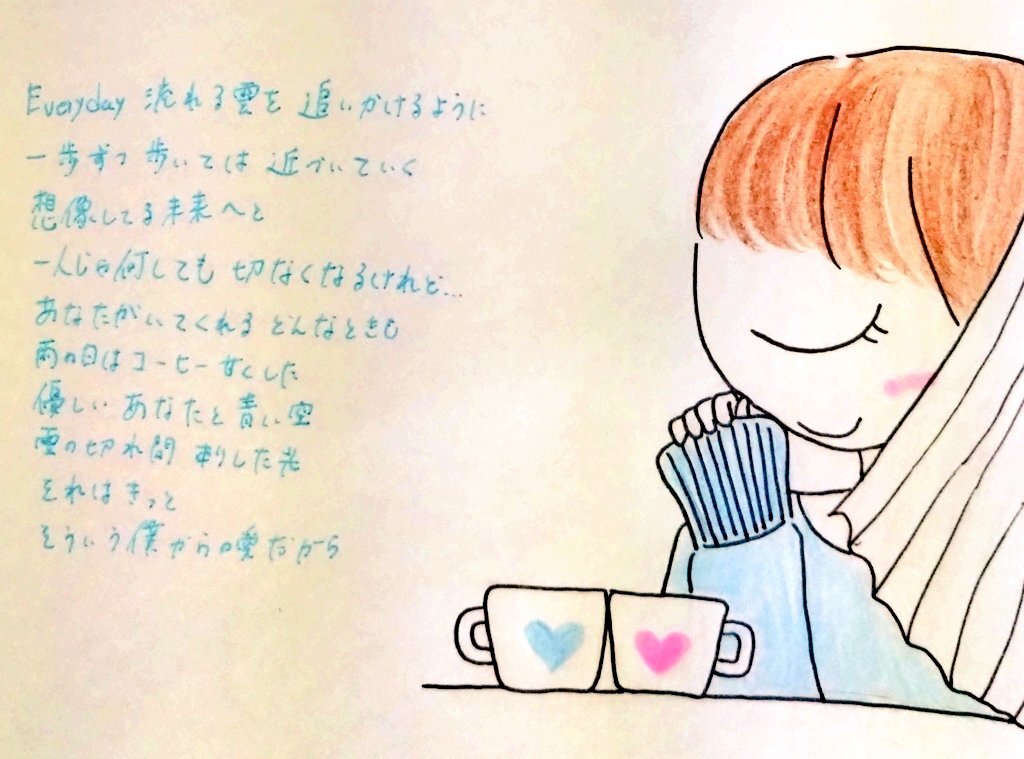 Everyday 流れる雲を 追いかけるように
一歩ずつ 歩いては 近づいていく
想像してる未来へと
一人じゃ何しても 切なくなるけれど...
あなたがいてくれる どんなときも
雨の日はコーヒー甘くした
優しい あなたと青い空
雲の切れ間 刺した光
それはきっと
そういう僕からの愛だから